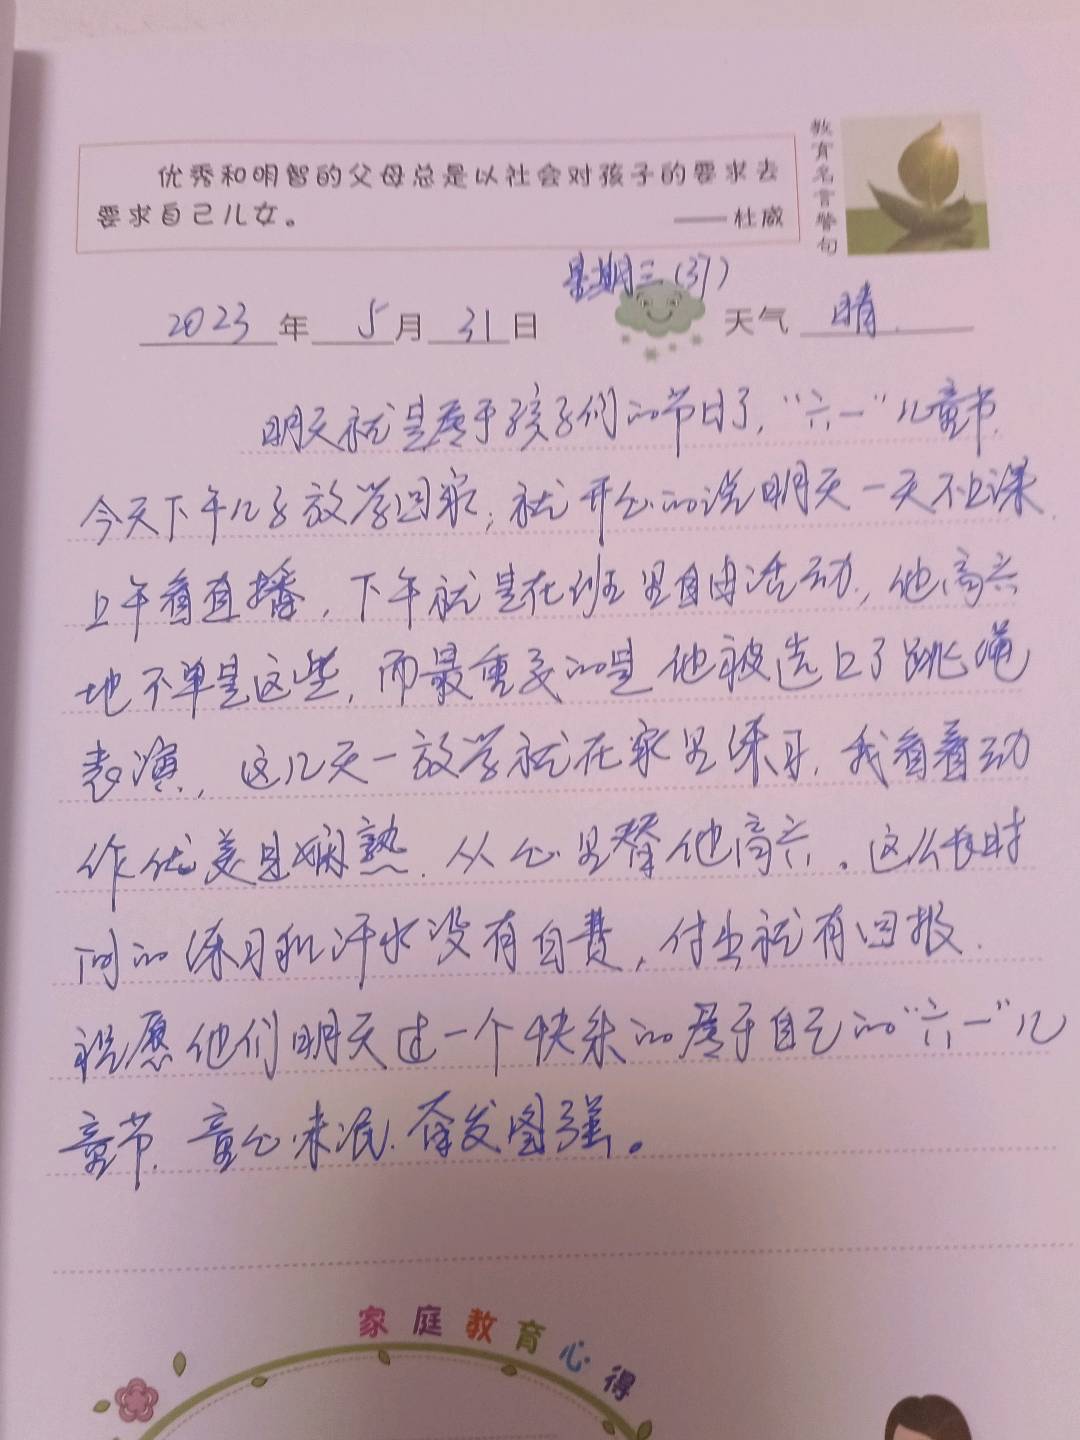 优秀和明智的父母总是以社会对孩子的要求去
要求自己儿女。 ——杜威
教育名言警句
星期三(37)
2023年5月31日 天气 晴.
明天就是属于孩子们的节日了，“六一”儿童节.
今天下午儿子放学回家，就开心的说明天一天不上课.
上午看直播，下午就是在班里自由活动，他高兴
地不单是这些，而最重要的是他被选上了跳绳
表演，这几天一放学就在家里练习，我看着动
作优美且娴熟.从心里替他高兴。这么长时
间的练习和汗水没有白费，付出就有回报.
祝愿他们明天过一个快乐的属于自己的“六一”儿
童节.童心未泯.奋发图强。
家庭教育心得